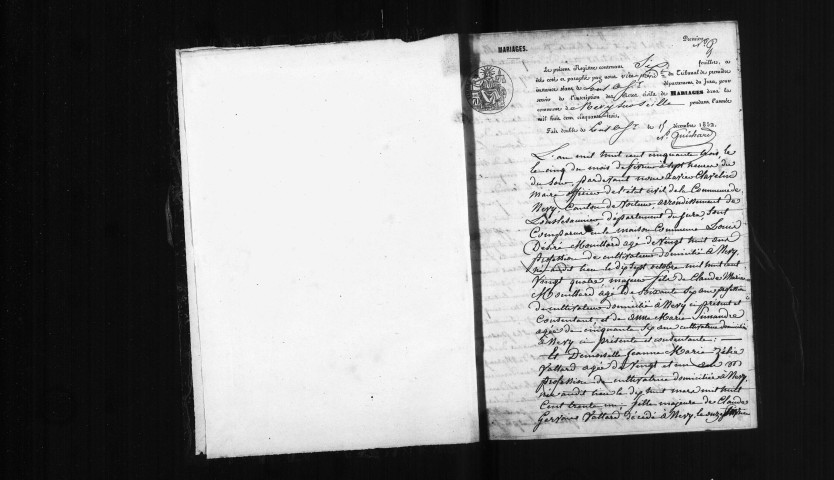 MARIAGES.
Le présent Registre contenant Six feuillets, a
été coté et paraphé par nous vice-président du Tribunal de première
instance séant de Lons département du Jura, pour
servir à l'inscription des Actes civils de MARIAGES dans la
commune de Nevy sur Seille pendant l'année
mil huit cent cinquante-trois.
Fait double le 15 décembre 1852
Guichard
L'an mil huit cent cinquante trois, le
le cinq du mois de février à sept heures du
du soir, pardevant nous Xavier Clavelin
maire officier de l'état civil de la Commune de
Nevy Canton de Voiteur, arrondissement de
Lonslesaunier, département du Jura, Sont
Comparus en la maison Commune Louis
Désiré Mouillard agé de Vingt huit ans
profession de cultivateur domicilié à Nevy,
né audit lieu le dix sept octobre mil huit cent
Vingt quatre majeur fils de Claude Marie
Mouillard agé de soixante six ans profession
de cultivateur domicilié à Nevy ci présent et
Consentant, et de Anne Marie
agée de cinquante six ans cultivatrice domiciliée
à Nevy ci présente et consentante : —
— Et Demoiselle Jeanne Marie Zélie
Vattard agée de Vingt et un ans
profession de cultivatrice domiciliée à Nevy
née audit lieu le dix huit mars mil huit
Cent trente un, fille majeure de Claude
Vattard décédé à Nevy, le onze